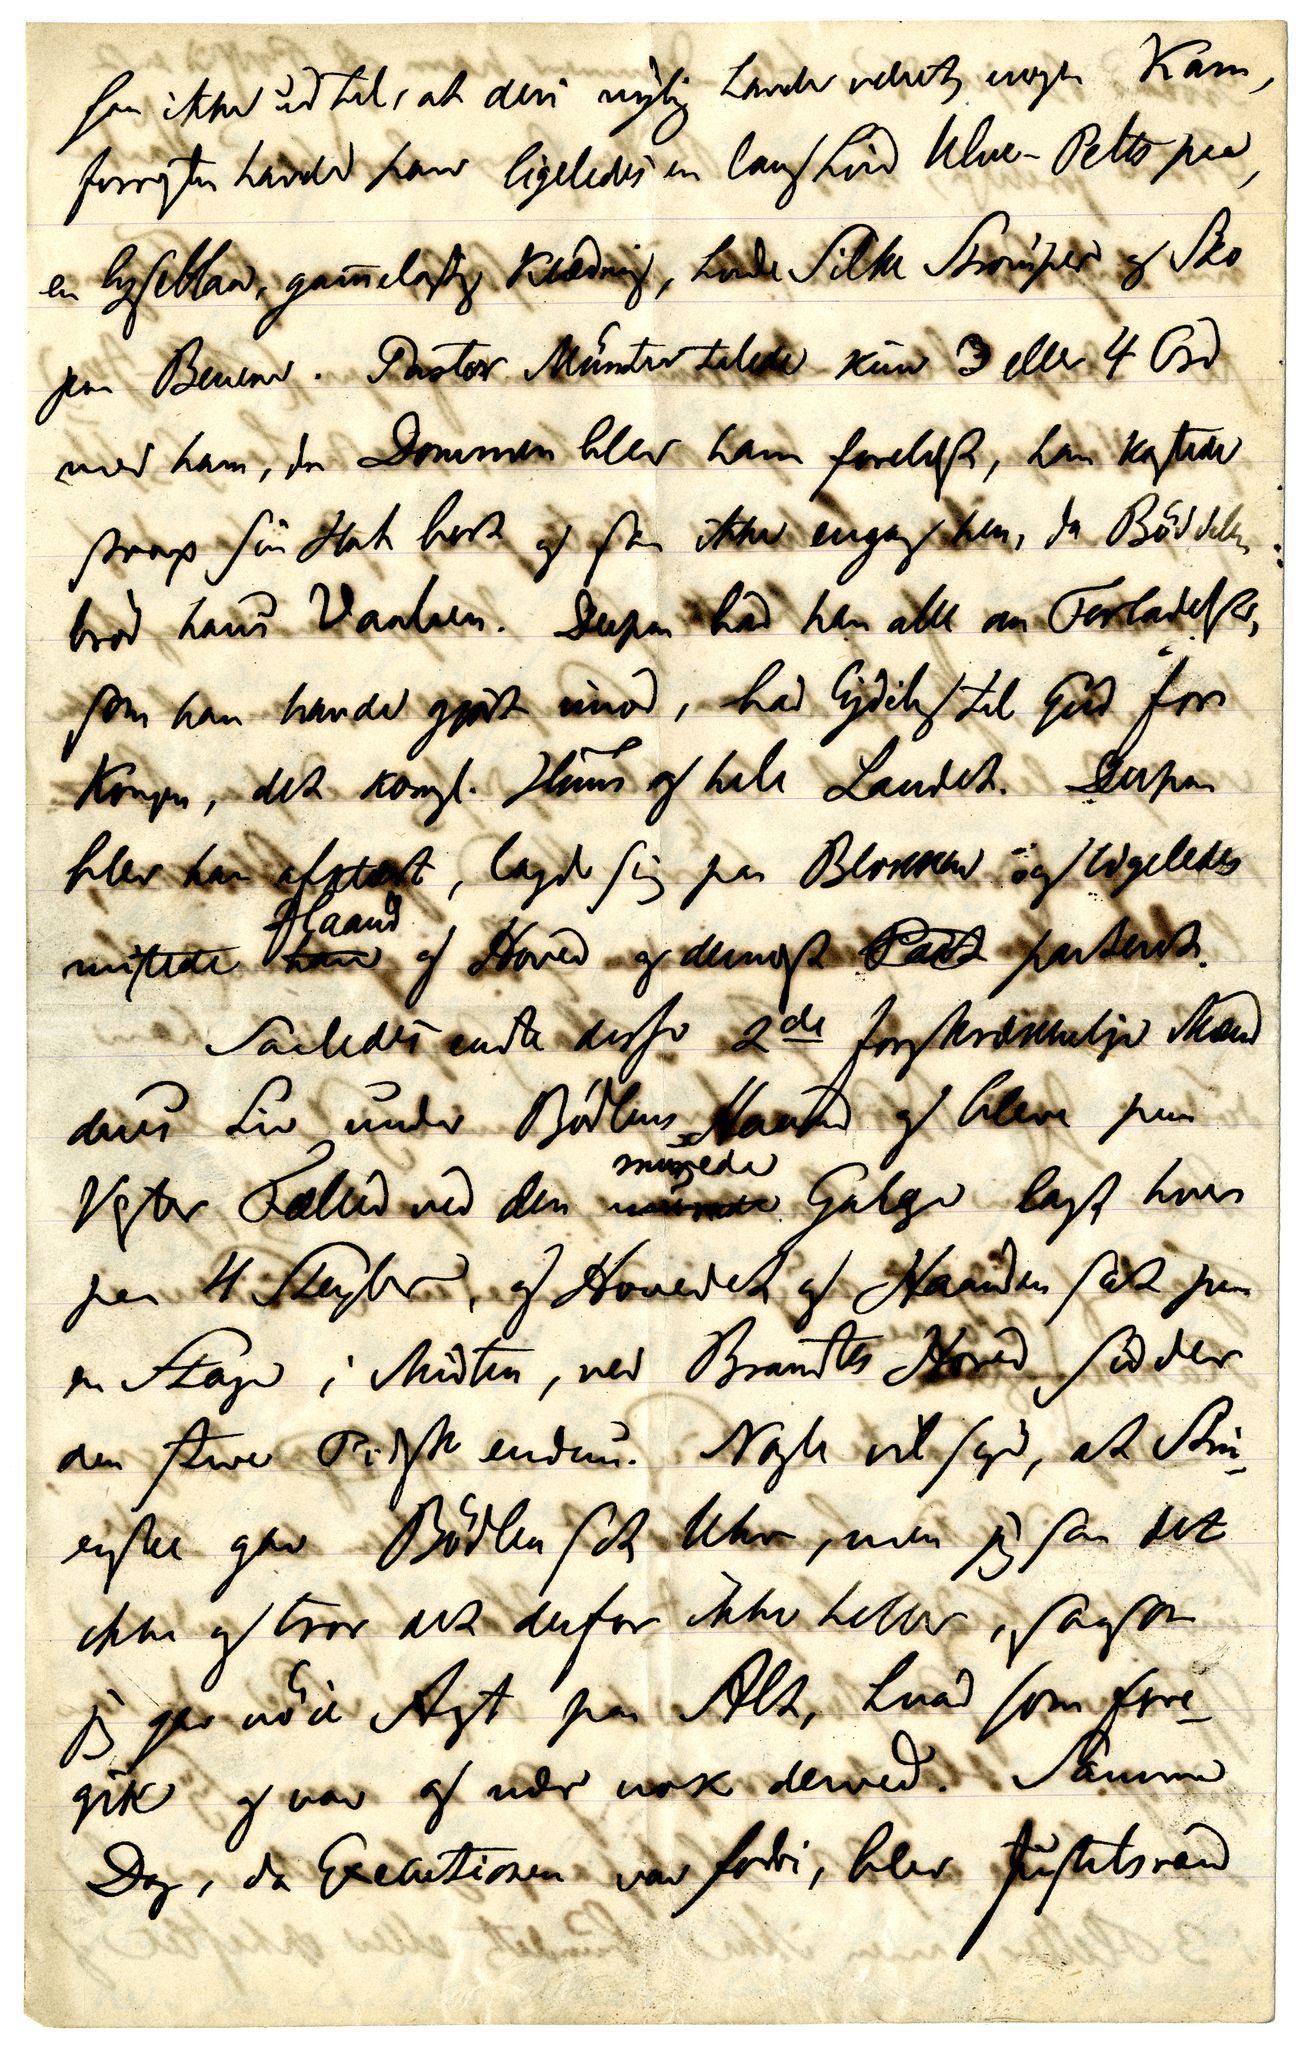 saa ikke ud til, at den nylig havde været nogen Kam,
forresten havde han ligeledes en lang hvid Ulve-Pelts paa,
en lyseblaa, gammelagtig Klædning, hvide Silke Strömper og Sko
paa Benene. Pastor Münter talede kun 3 eller 4 Ord
med ham, da Dommen blev ham forelæst, han kastede
strax sin Hat bort og saa ikke engang hen, da Böddelen
bröd hans Vaaben. Derpaa bad han alle om Forladelse,
som han havde gjort imod, bad lydeligt til Gud for
Kongen, det kongl. Huus og hele Landet. Derpaa
blev han afklædt, lagde sig paa Blokken og ligeledes
mistede Haand og Hoved og dernæst parteret.
Saaledes endte disse 2de forskrækkelige Mænd
deres Liv under Bödlens Haand og bleve paa
Vester Fælled ved den murede Galge lagt hver
paa 4 Steyler, og Hovedet og Haanden sat paa
en Stage i Midten, ved Brandtes Hoved sidder
den stive Pidsk endnu. Nogle vil sige, at Stru-
ensee gav Bödlen sit Uhr, men jeg saa det
ikke og tror det derfor ikke heller, saasom
jeg gav nöie Agt paa Alt, hvad som fore-
gik og var og nær nok derved. Samme
Dag, da Executionen var forbi, blev Justitsraad